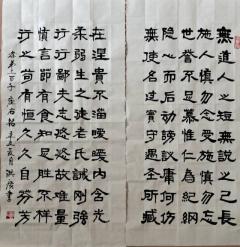 無道人之短無說己之長
施人慎勿念受施慎勿忘
世譽不足慕惟仁為紀綱
隱心而后動謗議庸何傷
無使名過實守愚聖所臧
在涅貴不淄曖曖內含光
柔弱生之徒老氏誡剛強
行行鄙夫志悠悠故難量
慎言節飲食知足勝不祥
行之苟有恒久久自芬芳
座右銘